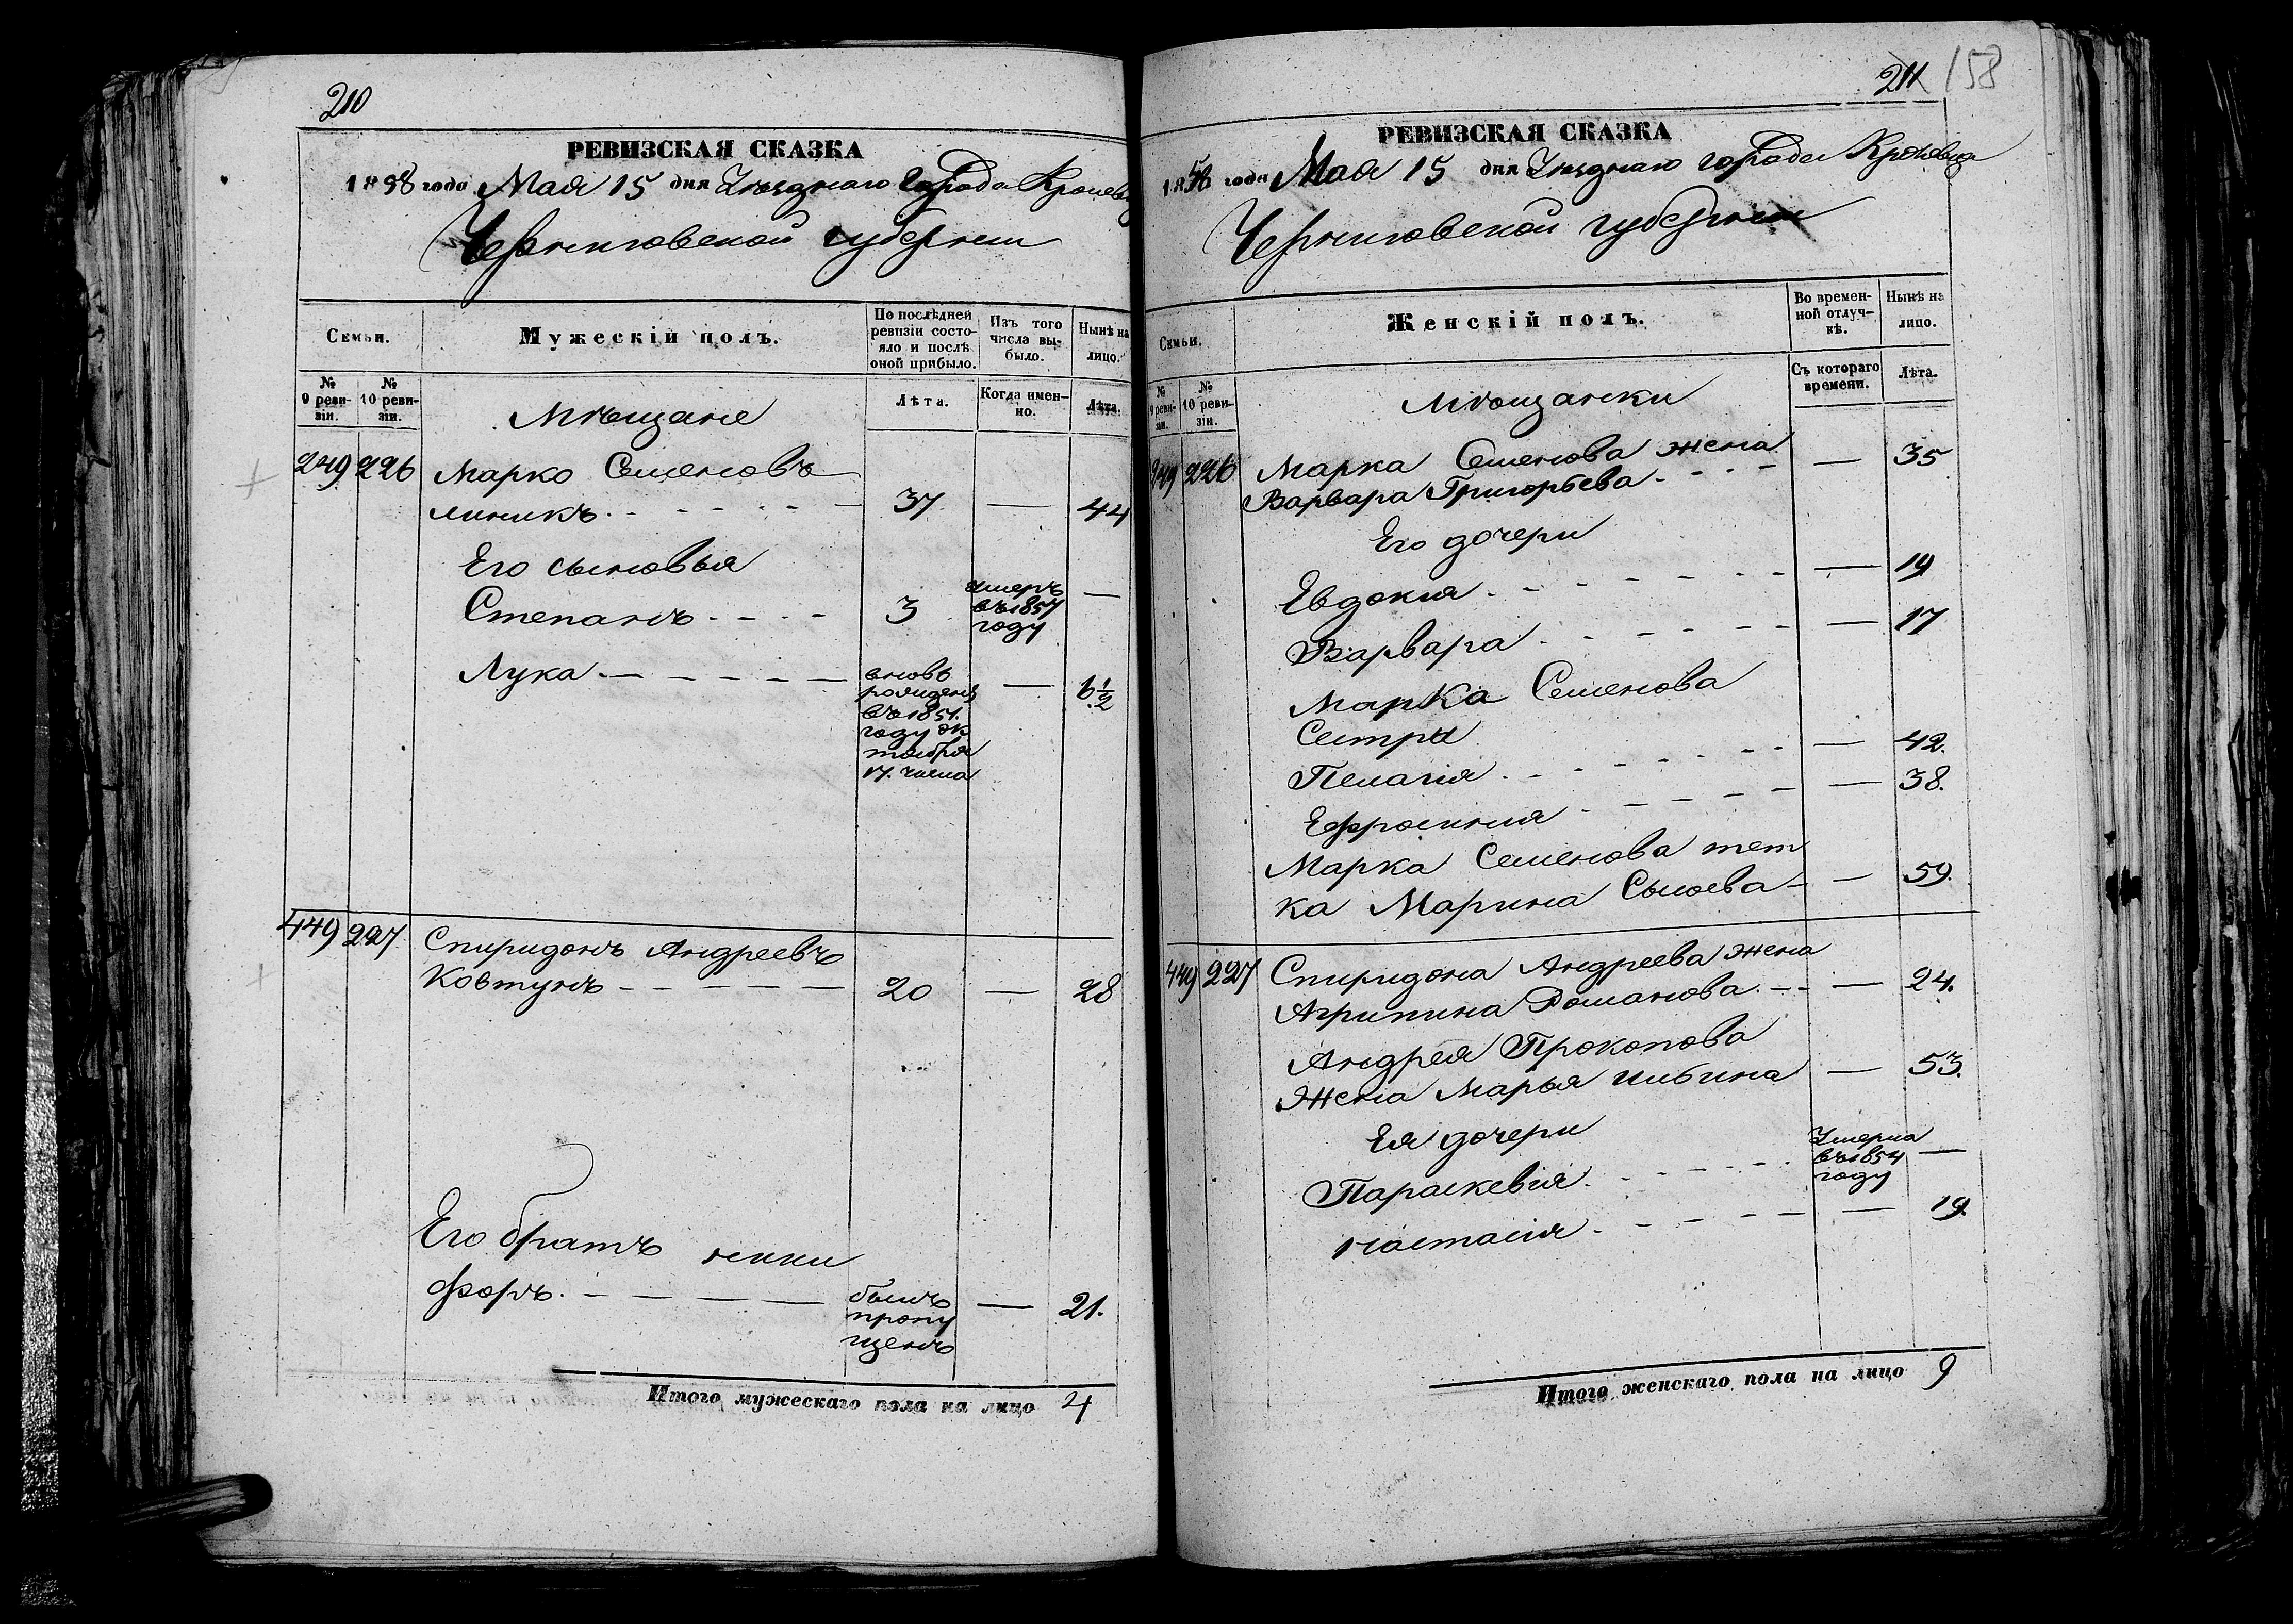 210
РЕВИЗСКАЯ СКАЗКА
1858 года Мая 15 дня Уѣзднаго города Кролев
Черниговской губернии
Семьи.
Мужескій полъ.
По послѣдней ревизіи состояло и послѣ оной прибыло.
Изъ того числа выбыло.
Нынѣ на лицо.
№ 9 ревизіи.
№ 10 ревизіи.
Лѣта.
Когда именно.
Лѣта.
Мѣщане
249 226 Марко Семеновъ
линикъ 37 — 44
Его сыновья
Степанъ 3 умеръ въ 1857 году —
Лука вновь рожденъ въ 1851. году октября 17. числа — 6 1/2
449 227 Спиридонъ Андреевъ
Ковтунъ 20 — 28
Его братъ ники
форъ. былъ пропущенъ — 21.
Итого мужескаго пола на лицо 4
211 158
РЕВИЗСКАЯ СКАЗКА
1858 года Мая 15 дня Уѣзднаго города Кролевца
Черниговской губернии
Семьи.
Женскій полъ.
Во временной отлучкѣ.
Нынѣ на лицо.
№ 9 ревизіи.
№ 10 ревизіи.
Съ котораго времени.
Лѣта.
Мѣщанки
249 226 Марка Семенова жена
Варвара Григорьева — 35
Его дочери
Евдокия — 19
Варвара — 17
Марка Семенова
Сестры
Пелагия — 42.
Ефросиния — 38.
Марка Семенова тет
ка Марина Сысоева — 59.
449 227 Спиридона Андреева жена
Агрипина Романова — 24.
Андрея Прокопова
жена Марья Ильина — 53.
Ея дочери
Параскевия Умерла въ 1854 году —
Настасия — 19.
Итого женскаго пола на лицо 9